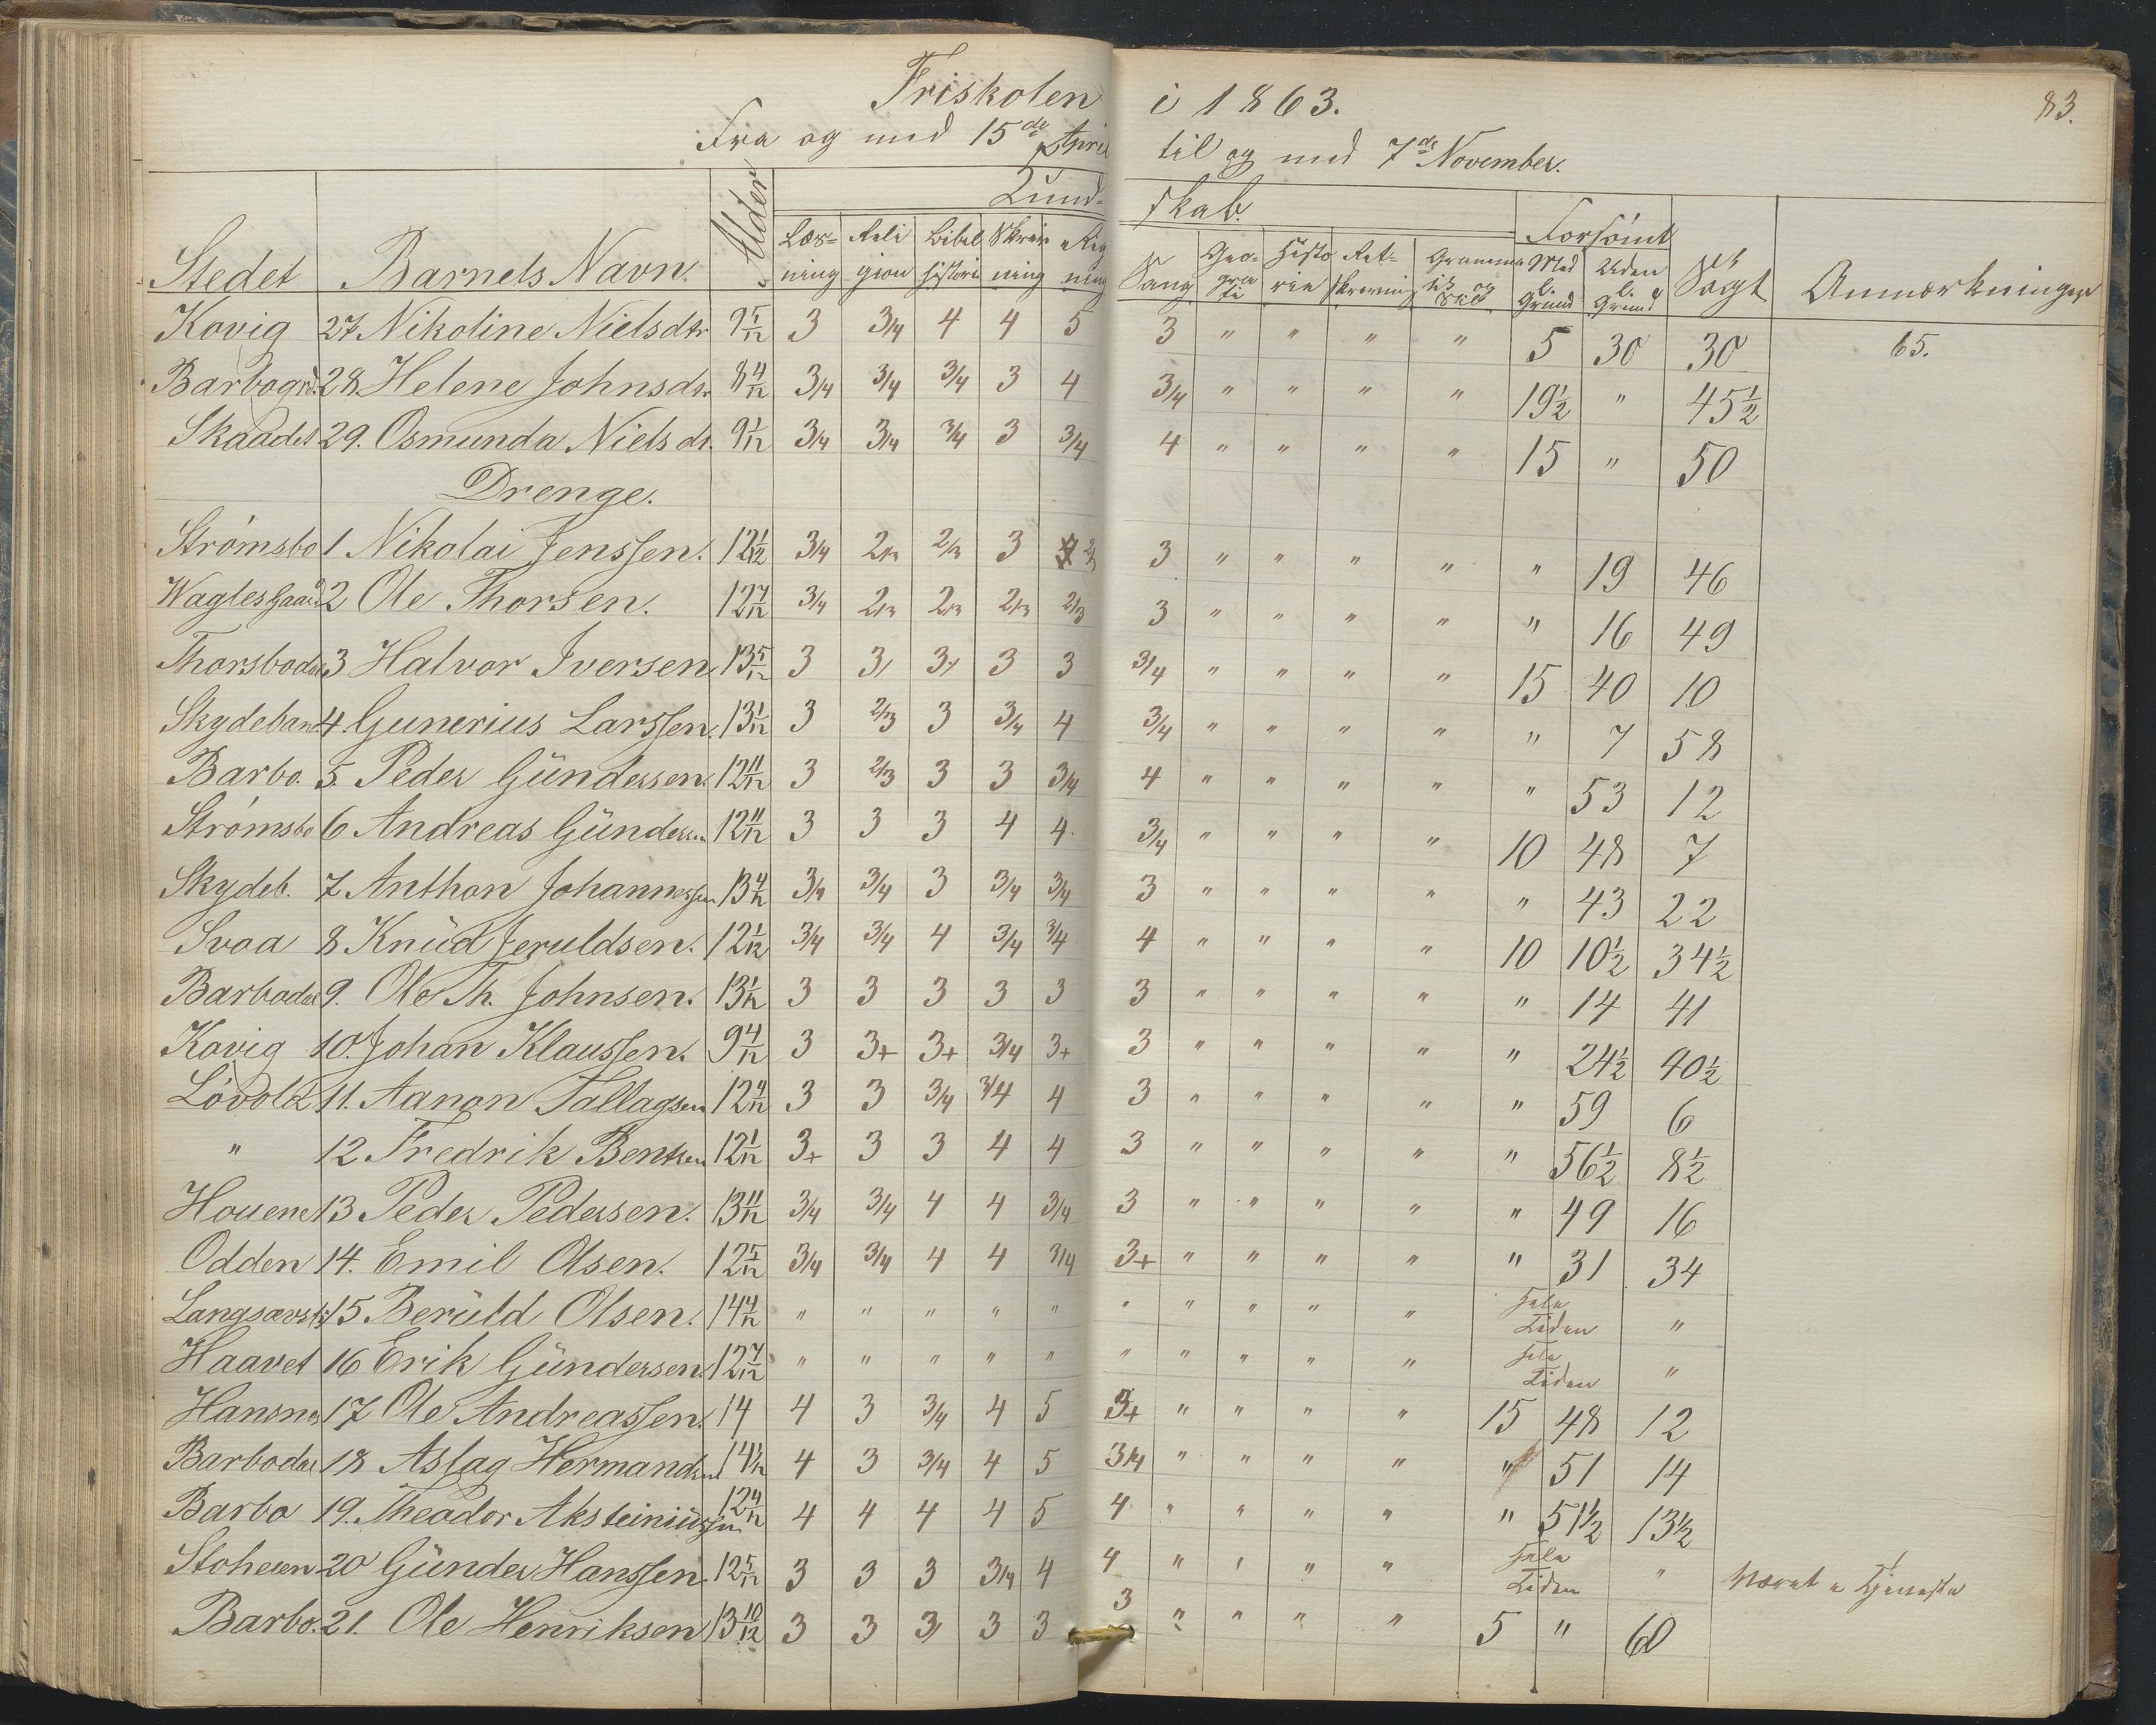 Friskolen i 1863. 83.
Fra og med 15de April til og med 7de November.
Kund- skab.
Forsömt
Stedet Barnets Navn. Alder Læs- ning Reli gion Bibel historie Skriv ning Reg ning Sang Geo- gra fi Histo rie Ret- skrivning Gramma tik og Stil Med l. Grund Uden l. Grund Søgt Anmærkninger
Kovig 27. Nikoline Nielsdtr 9 5/12 3 3/4 4 4 5 3 " " " " 5 30 30 65.
Barbogrd. 28. Helene Johnsdtr 8 4/12 3/4 3/4 3/4 3 4 3/4 " " " " 19½ " 45½
Skaadet 29. Osmunda Nielsdt. 9 1/12 3/4 3/4 3/4 3 3/4 4 " " " " 15 " 50
Drenge.
Strömsbo 1 Nikolai Jenssen. 12 1/12 3/4 2/3 2/3 3 2/3 3 " " " " " 19 46
Waglesgaard 2 Ole Thorsen. 12 7/12 3/4 2/3 2/3 2/3 2/3 3 " " " " " 16 49
Thorsbodal 3 Halvor Iversen 13 5/12 3 3/ 3/ 3 3 3/4 " " " " 15 40 10
Skydebane 4. Gunerius Larssen. 13 1/12 3 2/3 3 3/4 4 3/4 " " " " " 7 58
Barbo. 5. Peder Gündersen. 12 11/12 3 2/3 3 3 3/4 4 " " " " " 53 12
Strömsbo 6 Andreas Gündersen 12 11/12 3 3 3 4 4. 3/4 " " " " 10 48 7
Skydeb. 7 Anthon Johannessen 13 4/12 3/4 3/4 3 3/4 3/4 3 " " " " " 43 22
Svaa 8 Knüd Jeruldsen. 12 1/12 3/4 3/4 4 3/4 3/4 4 " " " " 10 10½ 34½
Barbodal 9. Ole Th. Johnsen. 13 1/12 3 3 3 3 3 3 " " " " " 14 41
Kovig 10. Johan Klaussen. 9 4/12 3 3+ 3+ 3/4 3+ 3 " " " " " 24½ 40½
Lövold 11. Aanon Tallagsen 12 4/12 3 3 3/4 3/4 4 3 " " " " " 59 6
" 12 Fredrik Bentsen 12 1/12 3+ 3 3 4 4 3 " " " " " 56½ 8½
Houene 13 Peder Pedersen. 13 11/12 3/4 3/4 4 4 3/4 3 " " " " " 49 16
Odden 14. Emil Olsen. 12 5/12 3/4 3/4 4 4 3/4 3+ " " " " " 31 34
15 Berüld Olsen. 14 4/12 " " " " " " " " " " Hele Tiden "
Haavet 16 Erik Gündersen. 12 7/12 " " " " " " " " " " Hele Tiden "
17 Ole Andreassen. 14 4 3 3/4 4 5 3+ " " " " 15 48 12
Barbodal 18 Aslag Hermandsen 14 1/12 4 3 3/4 4 5 3/4 " " " " " 51 14
Barbo 19. Theodor Aksteiniussen 12 4/12 4 4 4 4 5 4 " " " " " 51½ 13½
20 Günder Hanssen. 12 5/12 3 3 3 3/4 4 4 " " " " Hele Tiden " Været i Tjeneste
Barbo. 21. Ole Henriksen 13 10/12 3 3 3/ 3 3 3 " " " " 5 " 60